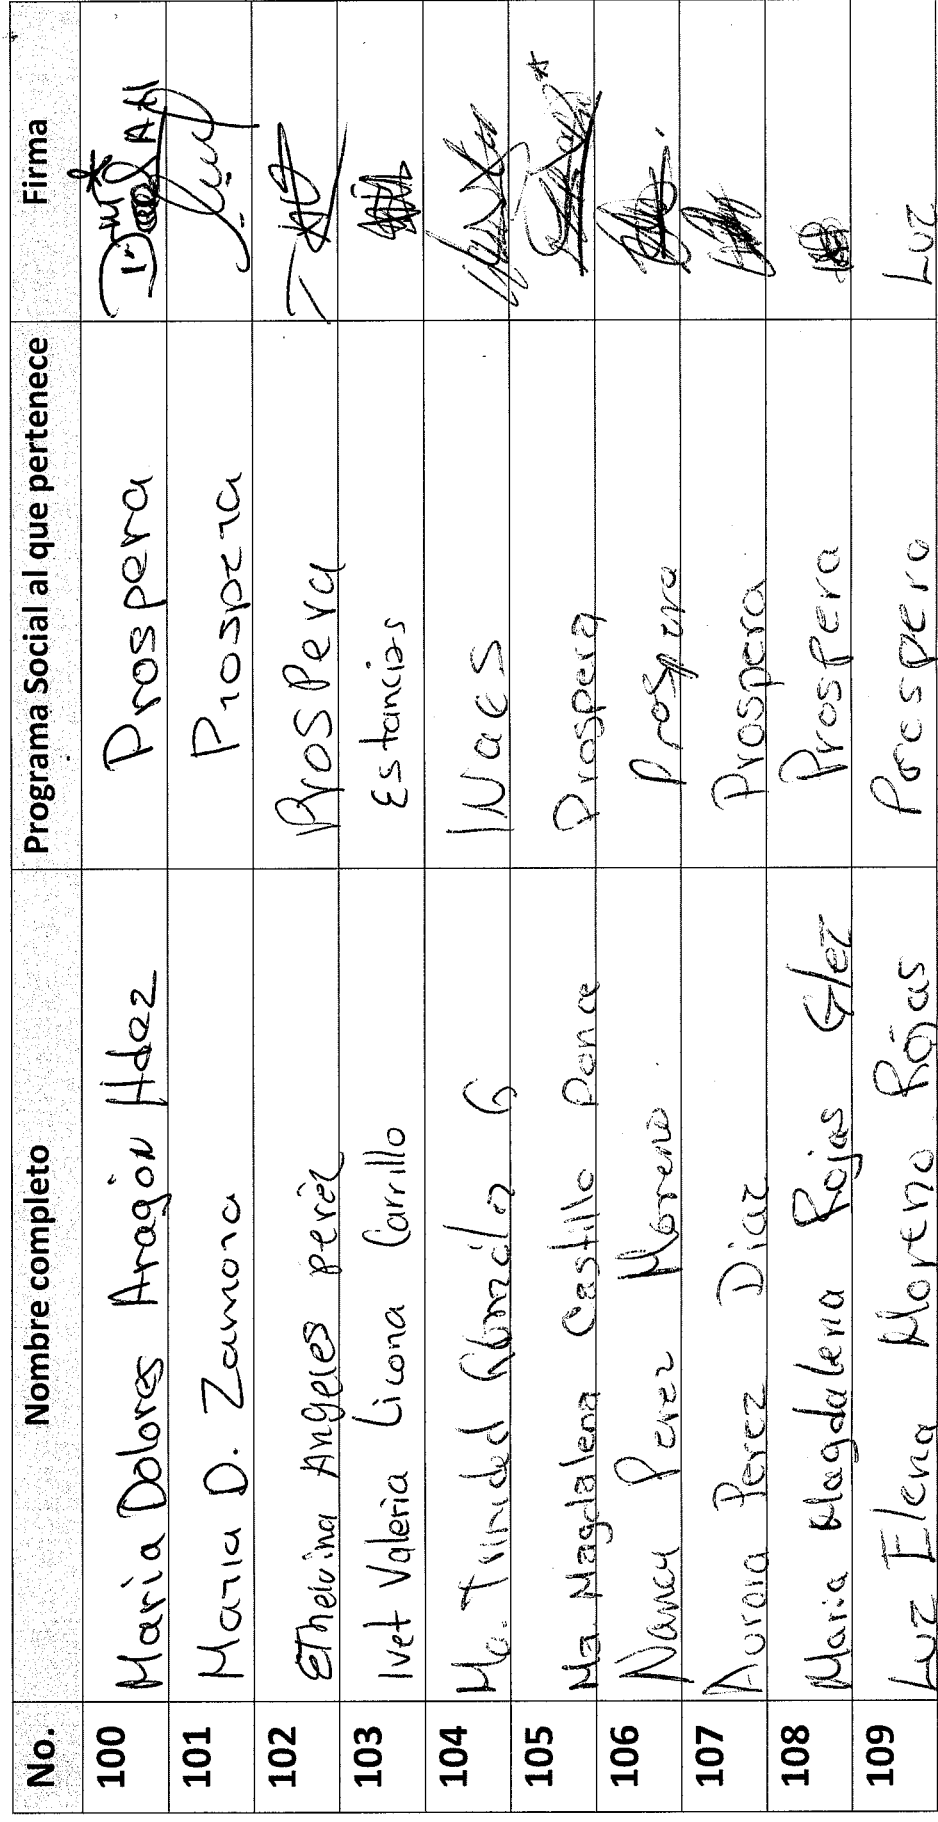 No. Nombre completo Programa Social al que pertenece Firma
100 Maria Dolores Aragón Hdez Prospera
101 Maria D. Zamora Prospera
102 Ethelvina Angeles peréz Prospera
103 Ivet Valeria Licona Carrillo Estancias
104 Ma. Trinidad G INaes
105 Ma Magdalena Castillo Ponce Prospera
106 Nancy Perez Moreno. Prospera
107 Aurora Perez Diaz Prospera
108 Maria Magdalena Rojas Glez Prospera
109 Luz Elena Moreno Rojas Prospera Luz